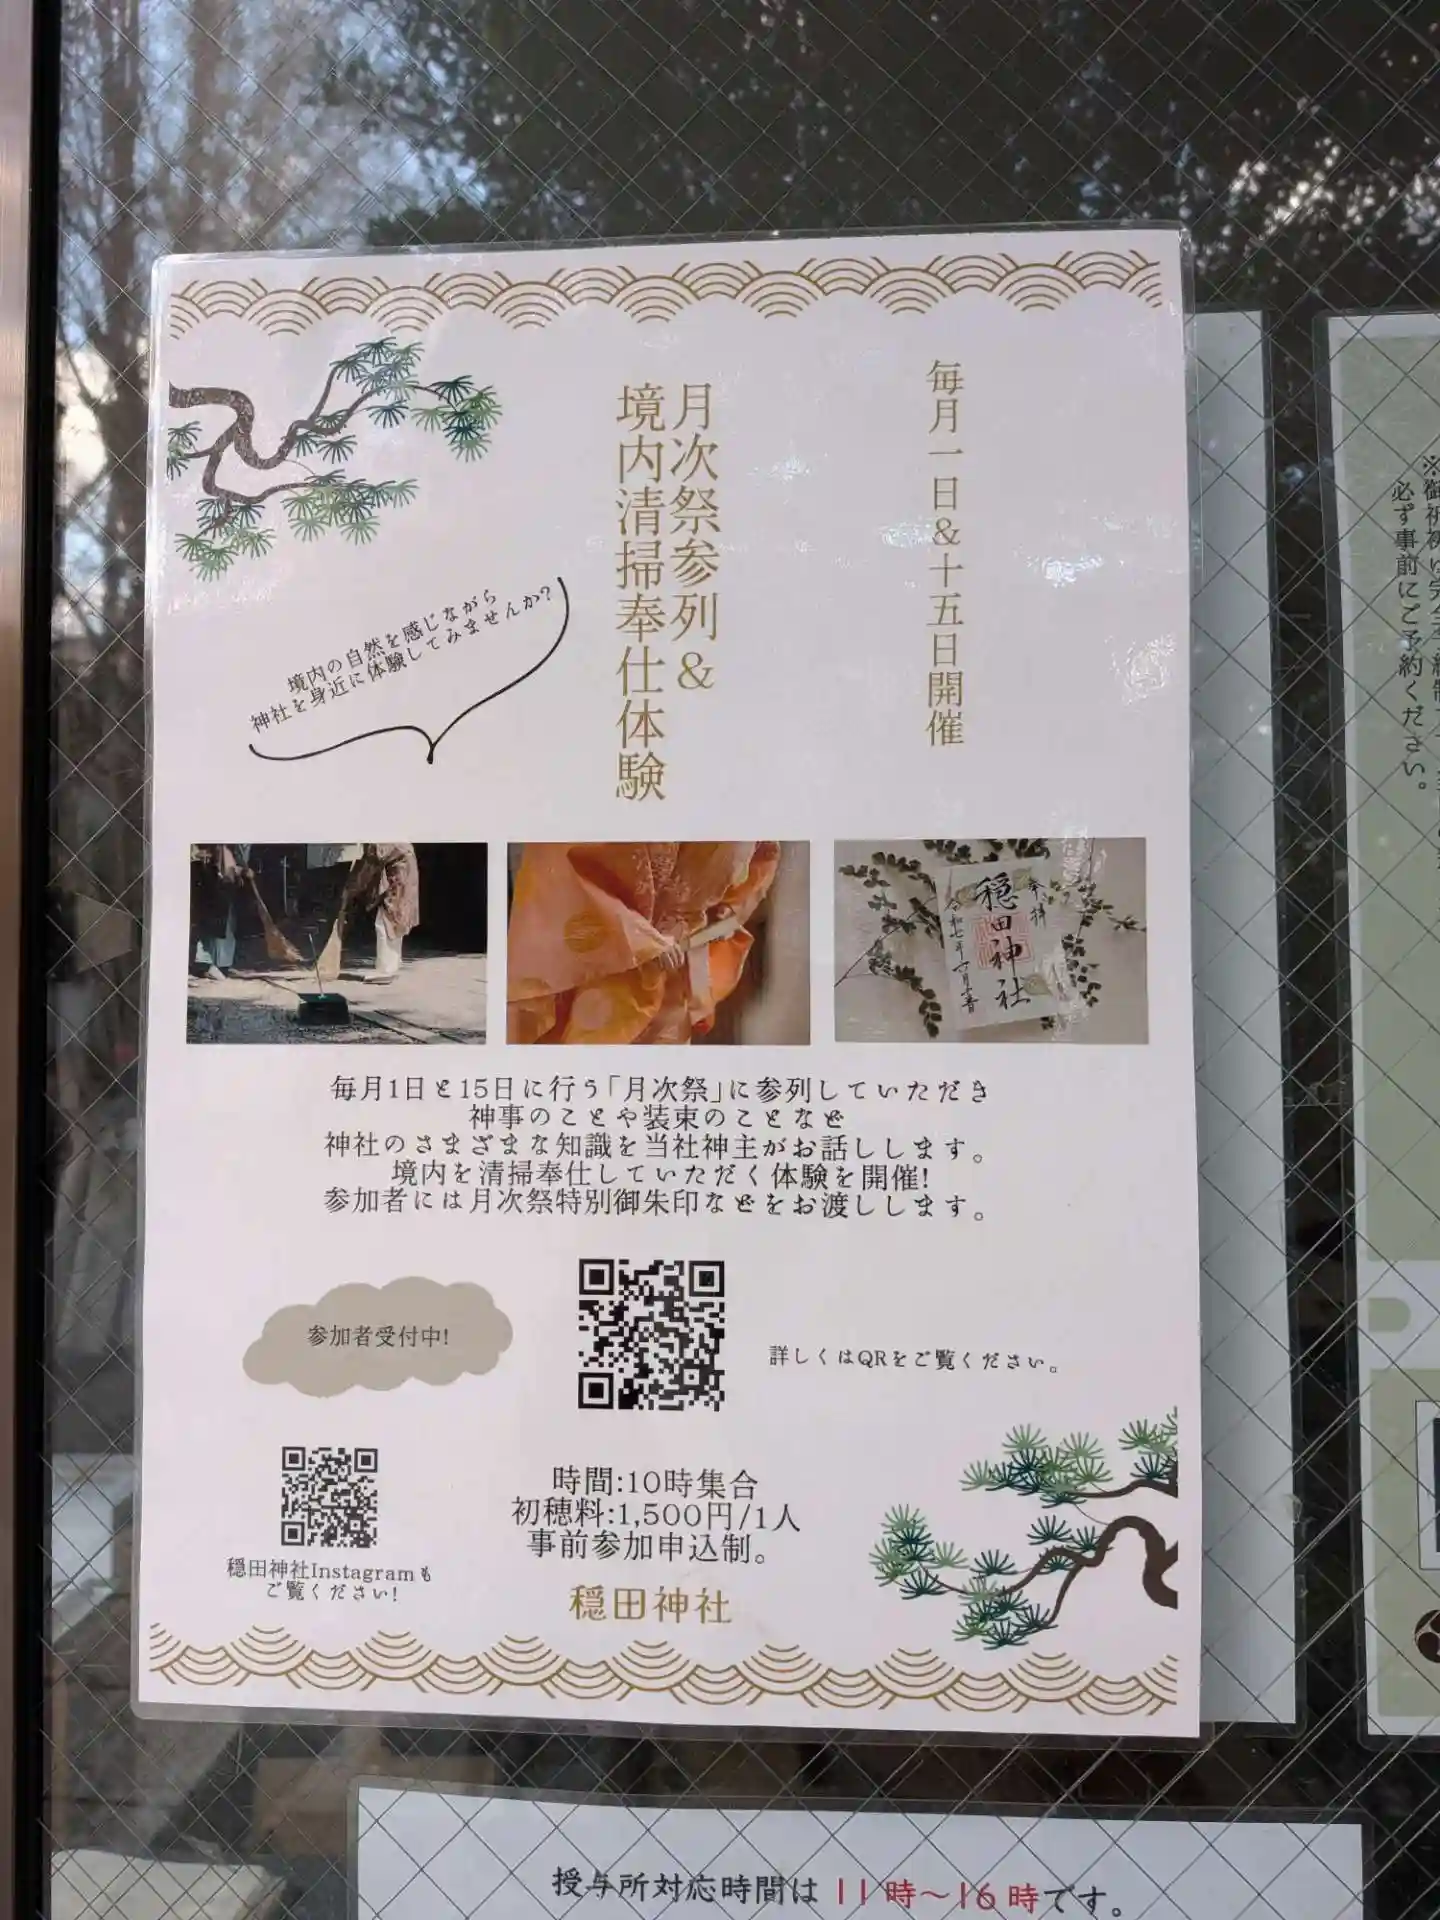 毎月一日&十五日開催
月次祭参列&
境内清掃奉仕体験
境内の自然を感じながら
神社を身近に体験してみませんか?
奉拝
穏田神社
毎月1日と15日に行う「月次祭」に参列していただき
神事のことや装束のことなど
神社のさまざまな知識を当社神主がお話しします。
境内を清掃奉仕していただく体験を開催!
参加者には月次祭特別御朱印などをお渡しします。
参加者受付中!
詳しくはQRをご覧ください。
時間:10時集合
初穂料:1,500円/1人
事前参加申込制。
穏田神社
穏田神社Instagramも
ご覧ください!
必ず事前にご予約ください。
授与所対応時間は 11時～16時です。